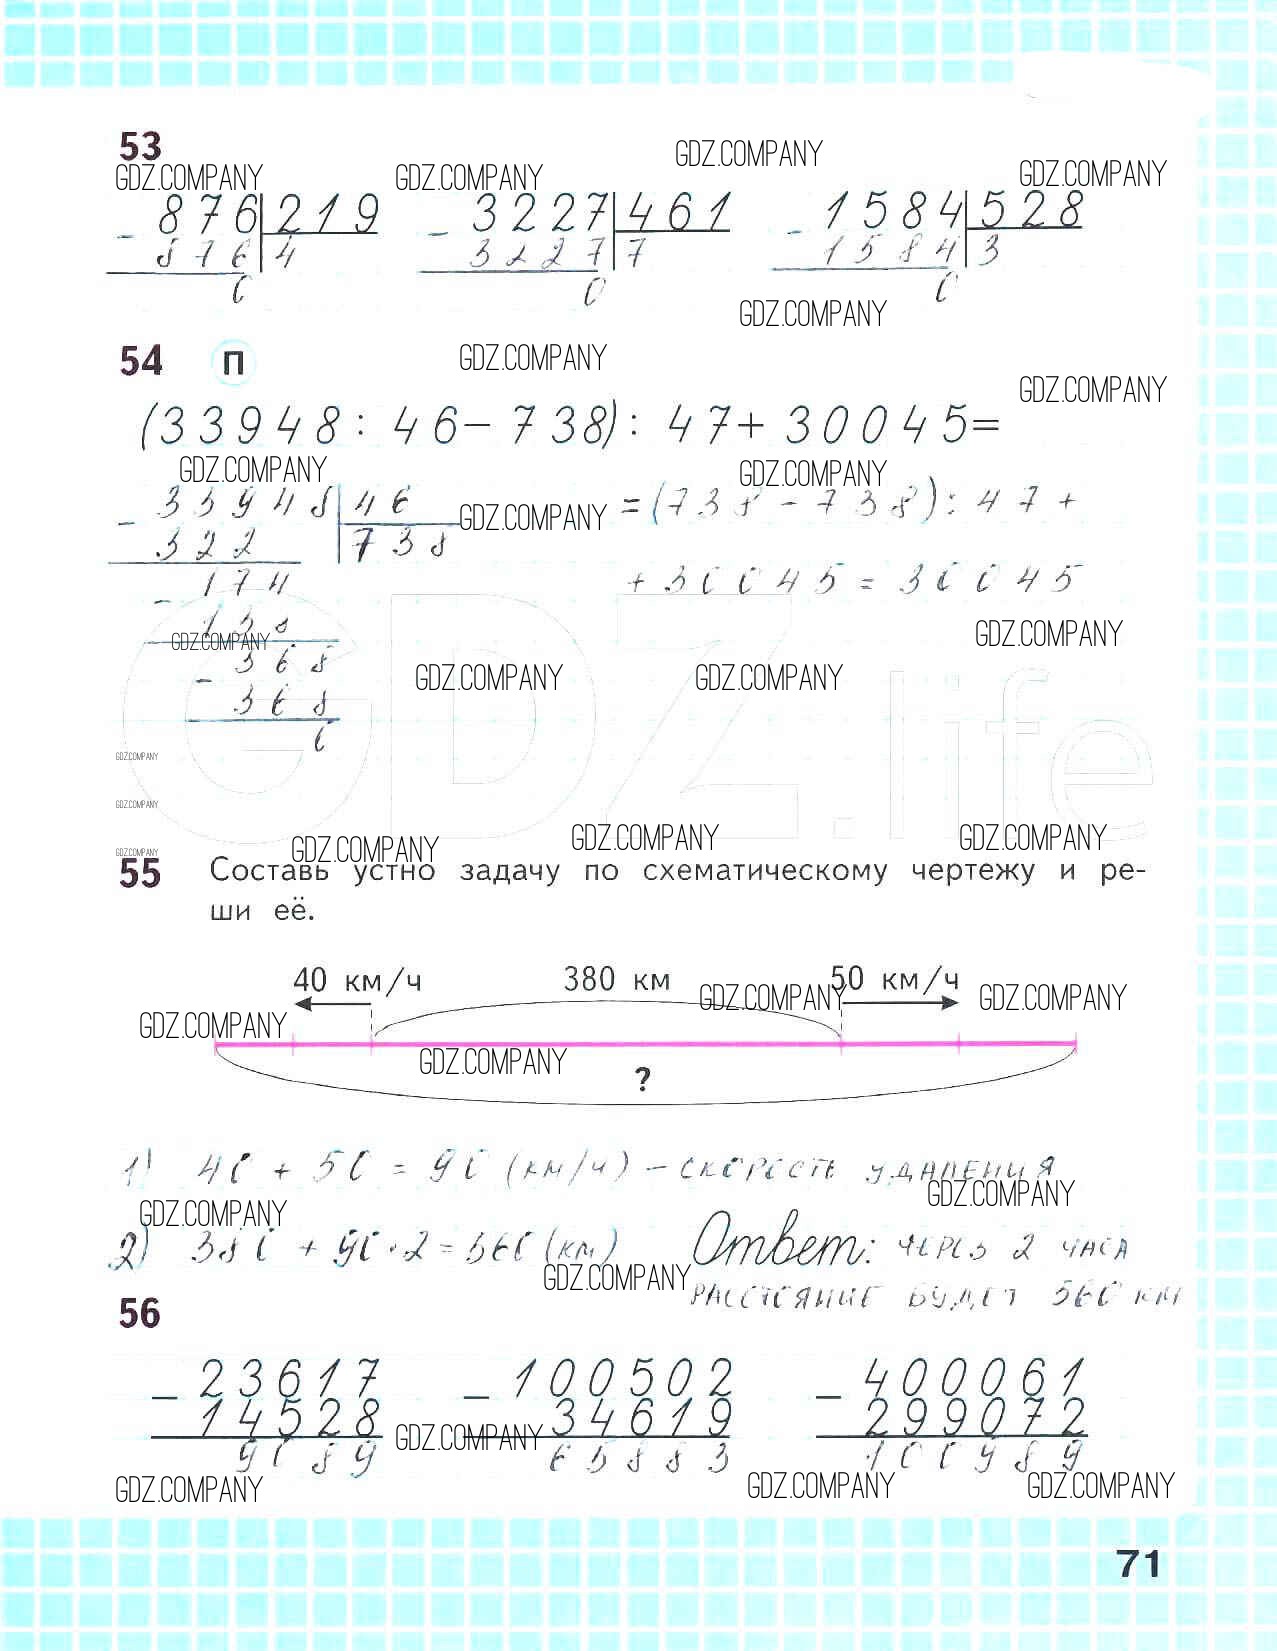 53
GDZ.COMPANY GDZ.COMPANY GDZ.COMPANY GDZ.COMPANY
- 876 219 - 3227 461 - 1584 528
876 4 3227 7 1584 3
0 0 0
GDZ.COMPANY
54 П GDZ.COMPANY GDZ.COMPANY
(33948 : 46 - 738) : 47 + 30045 =
GDZ.COMPANY GDZ.COMPANY
- 33948 46 GDZ.COMPANY = (738 - 738) : 47 +
322 738
- 174 + 30045 = 30045
138
GDZ.COMPANY GDZ.COMPANY GDZ.COMPANY GDZ.COMPANY
- 368
368
0
GDZ.life
GDZ.COMPANY
GDZ.COMPANY
GDZ.COMPANY GDZ.COMPANY GDZ.COMPANY GDZ.COMPANY
55 Составь устно задачу по схематическому чертежу и ре-
ши её.
40 км/ч 380 км 50 км/ч
GDZ.COMPANY GDZ.COMPANY GDZ.COMPANY
GDZ.COMPANY
?
1) 40 + 50 = 90 (км/ч) - скорость удаления
GDZ.COMPANY GDZ.COMPANY
2) 380 + 90·2 = 560 (км) Ответ: через 2 часа
GDZ.COMPANY расстояние будет 560 км
56
- 23617 - 100502 - 400061
14528 34619 299072
9089 65883 100989
GDZ.COMPANY GDZ.COMPANY GDZ.COMPANY GDZ.COMPANY
71